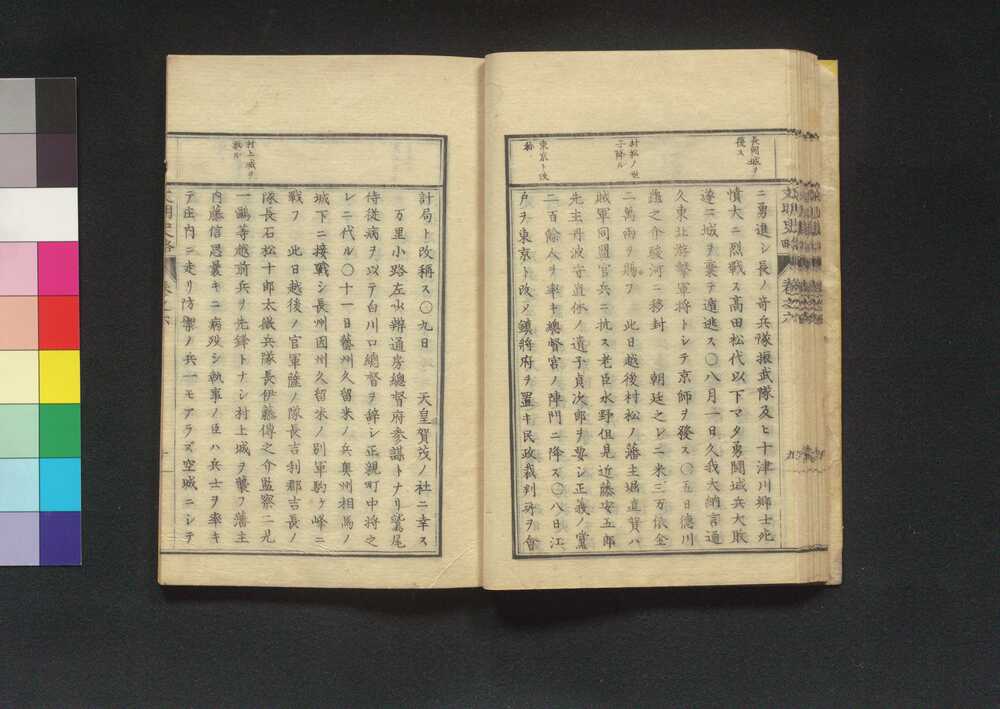 長岡城ヲ
復ス
村松ノ世
子降ル
東京ト改
稱
ニ勇進シ長ノ奇兵隊振武隊及ヒ十津川郷士死
憤大ニ烈戰ス高田松代以下マタ勇鬪城兵大敗
遂ニ城ヲ棄テ遁逃ス〇八月一日久我大納言通
久東北游撃軍將トシテ京師ヲ發ス〇五日德川
龜之介駿河ニ移封 朝廷之レニ米三万俵金
二萬兩ヲ賜フ 此日越後村松ノ藩主堀直賀ハ
賊軍同盟官兵ニ抗ス老臣水野但見近藤安五郎
先主丹波守直休ノ遺子貞次郎ヲ擧シ正義ノ黨
二百餘人ヲ率ヰ總督宮ノ陣門ニ降ス〇八日江
戸ヲ東京ト改メ鎮將府ヲ置キ民政裁判所ヲ會
文明史畧 卷之六
村上城ヲ
計局ト改稱ス〇九日 天皇賀茂ノ社ニ幸ス
万里小路左少辨通房總督府參謀トナリ鷲尾
侍從病ヲ以テ白川口總督ヲ辭シ正親町中將之
レニ代ル〇十一日藝州久留米ノ兵奥州相馬ノ
城下ニ接戰シ長州因州久留米ノ別軍駒ヶ峰ニ
戰フ 此日越後ノ官軍薩ノ隊長吉利郡吉長ノ
隊長石松十郎太徴兵隊長伊藤傳之介監察二見
一鷗等越前兵ヲ先鋒トナシ村上城ヲ襲フ藩主
内藤信思曩キニ病歿シ執事ノ臣ハ兵士ヲ率キ
テ庄内ニ走リ防禦ノ兵一モアラズ空城ニシテ